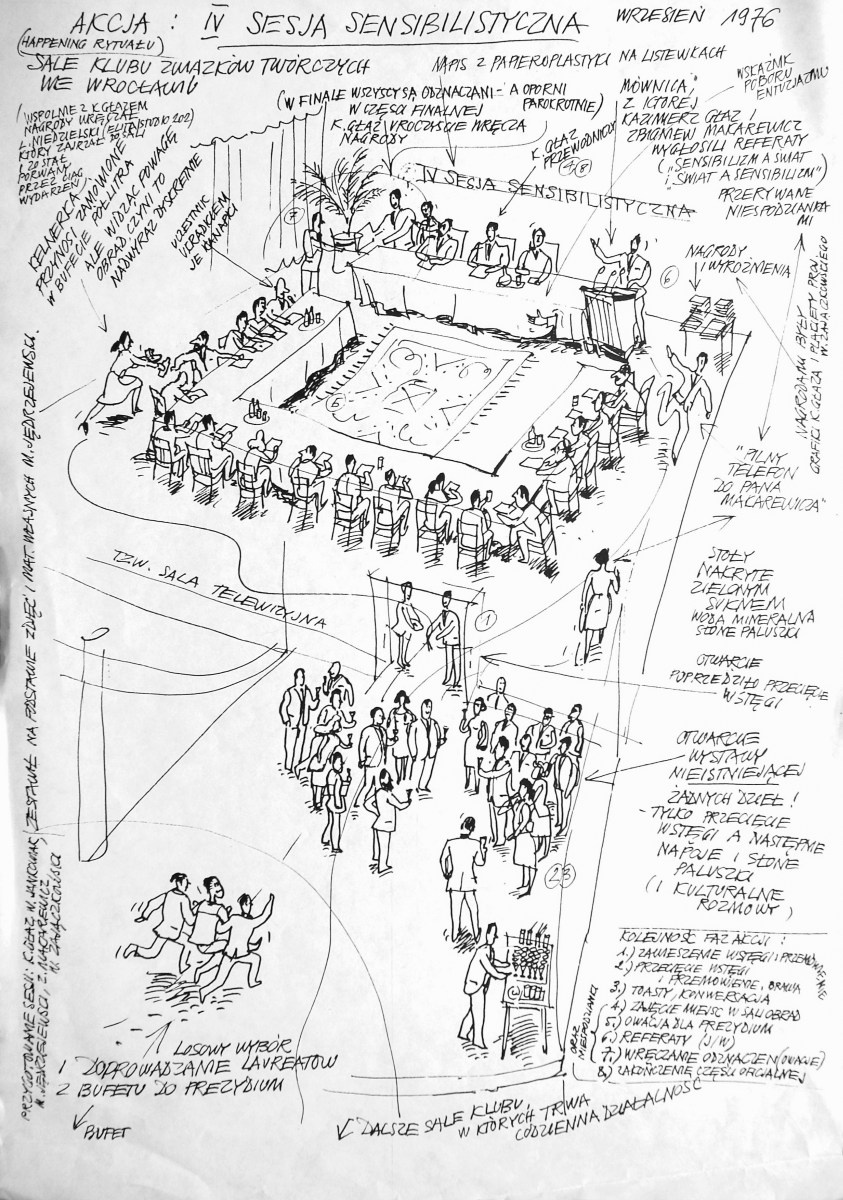 AKCJA: IV SESJA SENSIBILISTYCZNA
WRZESIEŃ 1976
(HAPPENING RYTUAŁU)
SALE KLUBU ZWIĄZKÓW TWÓRCZYCH
WE WROCŁAWIU
NAPIS Z PAPIEROPLASTYKI NA LISTEWKACH
(W FINALE WSZYSCY SĄ ODZNACZANI - A OPORNI
PAROKROTNIE)
W CZĘŚCI FINALNEJ
K. GŁAZ UROCZYŚCIE WRĘCZA
NAGRODY
K. GŁAZ
PRZEWODNICZY
MÓWNICA,
Z KTÓREJ
KAZIMIERZ GŁAZ I
ZBIGNIEW MAKAREWICZ
WYGŁOSILI REFERATY
("SENSIBILIZM A ŚWIAT
I ŚWIAT A SENSIBILIZM")
PRZERYWANE
NIESPODZIANKA
MI
WSKAŹNIK
POBORU
ENTUZJAZMU
WSPÓLNIE Z K. GŁAZEM
NAGRODY WRĘCZAŁ
L. NIEDZIELSKI (ELITA STUDIO 202)
KTÓRY ZAJRZAŁ DO SALI
I ZOSTAŁ
PORWANY
PRZEZ CIĄG
WYDARZEŃ
KELNERKA
PRZYNOSI ZAMÓWIONE
W BUFECIE PÓŁ LITRA
ALE WIDZĄC POWAGĘ
OBRAD CZYNI TO
NADWYRAZ DYSKRETNIE
UCZESTNIK
UKRADKIEM
JE KANAPKI
IV SESJA SENSIBILISTYCZNA
7
8
6
6
NAGRODY
I WYRÓŻNIENIA
NAGRODAMI BYŁY
GRAFIKI K. GŁAZA
"PILNY
TELEFON
DO PANA
MAKAREWICZA"
STOŁY
NAKRYTE
ZIELONYM
SUKNEM
WODA MINERALNA
SŁONE PALUSZKI
TZW. SALA TELEWIZYJNA
1
OTWARCIE
POPRZEDZIŁO PRZECIĘCIE
WSTĘGI
OTWARCIE
WYSTAWY
NIEISTNIEJĄCEJ
ŻADNYCH DZIEŁ!
- TYLKO PRZECIĘCIE
WSTĘGI A NASTĘPNIE
NAPOJE I SŁONE
PALUSZKI
(I KULTURALNE
ROZMOWY)
23
KOLEJNOŚĆ FAZ AKCJI:
1.) ZAWIESZENIE WSTĘGI I PRZEMÓWIENIE
2.) PRZECIĘCIE WSTĘGI
I PRZEMÓWIENIE, ORACJA
3.) TOASTY, KONWERSACJA
4.) ZAJĘCIE MIEJSC W SALI OBRAD
5.) OWACJA DLA PREZYDIUM
6.) REFERATY (J/W)
7.) WRĘCZANIE ODZNACZEŃ (OWACJE)
8.) ZAKOŃCZENIE CZĘŚCI OFICJALNEJ
ORAZ
NIESPODZIANKI
LOSOWY WYBÓR
I DOPROWADZANIE LAUREATÓW
Z BUFETU DO PREZYDIUM
BUFET
DALSZE SALE KLUBU,
W KTÓRYCH TRWA
CODZIENNA DZIAŁALNOŚĆ
PRZYGOTOWANIE SESJI: K. GŁAZ, W. JANKOWIAK,
M. JĘDRZEJEWSKI, Z. MAKAREWICZ
ZESTAWIŁ NA PODSTAWIE ZDJĘĆ I MAT. WŁASNYCH M. JĘDRZEJEWSKI.